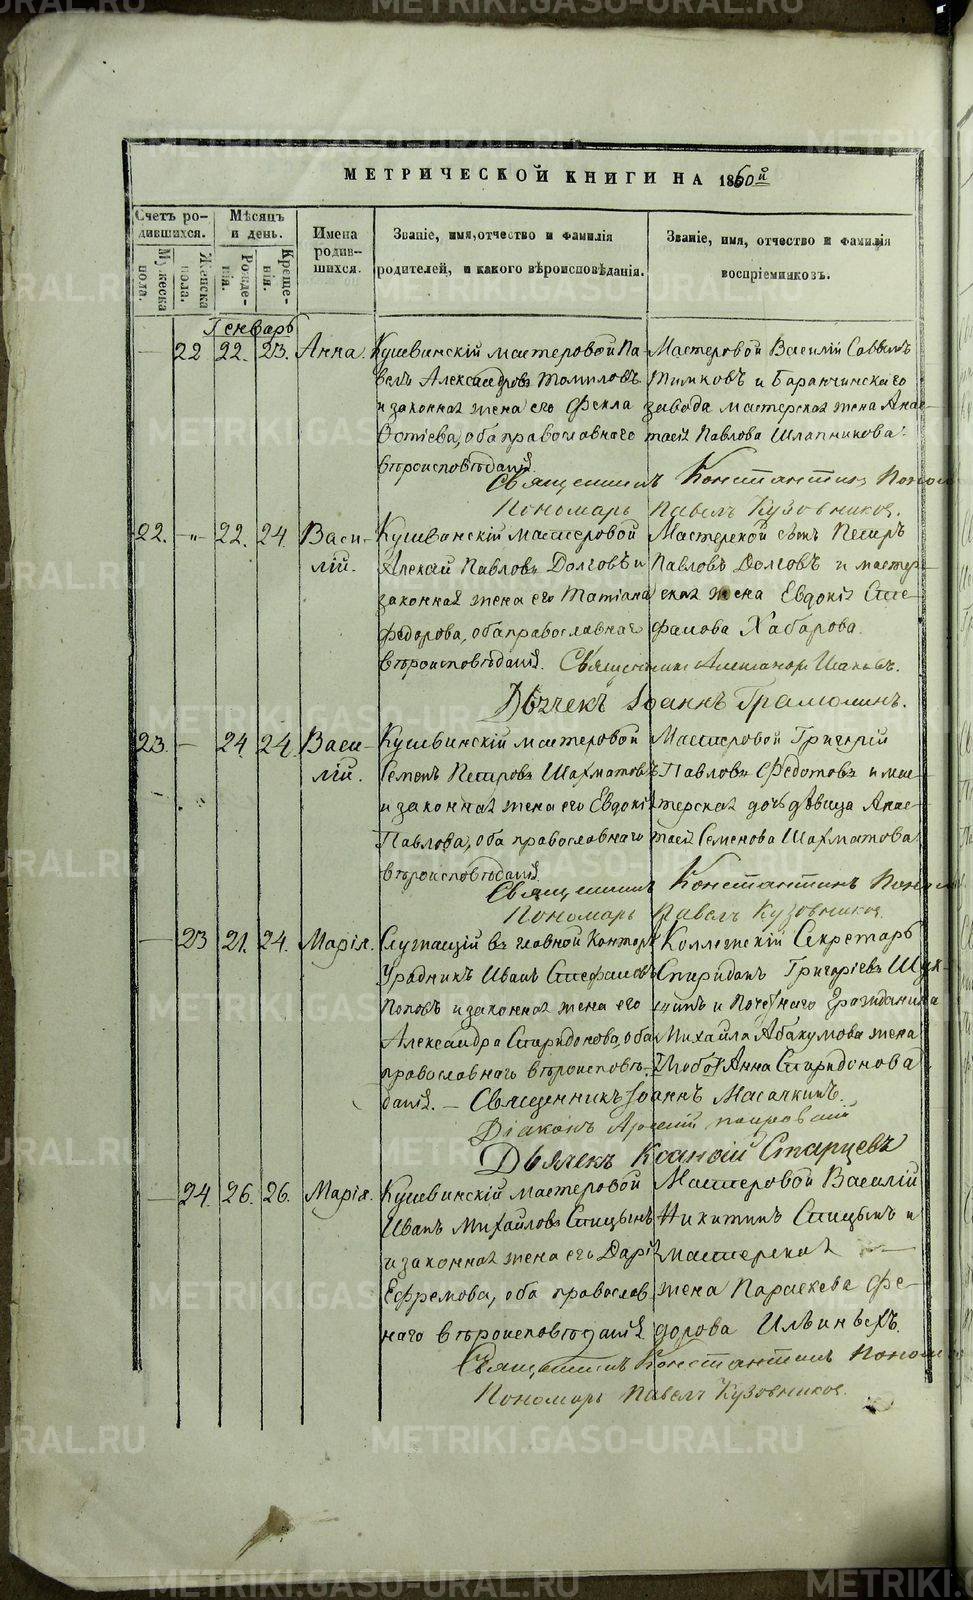 МЕТРИЧЕСКОЙ КНИГИ НА 1860й
Счетъ ро-
дившихся.
Мужеска
пола.
Женска
пола.
Мѣсяцъ
и день.
Рожде-
нія.
Креще-
нія.
Имена
родив-
шихся.
Званіе, имя, отчество и фамилія
родителей, и какого вѣроисповѣданія.
Званіе, имя, отчество и фамилія
воспріемниковъ.
Генварь
22 22. 23. Анна. Кушвинскій мастеровой Па- Мастеровой Василій Саввинъ
велъ Александровъ Томиловъ Тимковъ и Баранчинскаго
и законная жена его Фекла завода мастерская жена Анас-
оба православнаго тасія Павлова Шляпникова.
вѣроисповѣданія.
Священникъ Константинъ
Пономарь Павелъ Кузовниковъ.
22. -"- 22. 24. Васи- Кушвинскій мастеровой Мастерской сынъ Петръ
лій. Алексѣй Павловъ Долговъ и Павловъ Долговъ и мастер-
законная жена его Татіана ская жена Евдокія Сте-
Федорова, оба православнаго фанова Хабарова.
вѣроисповѣданія. Священникъ Александръ
Дьячекъ Іоаннъ Грамолинъ.
23. - 24. 24. Васи- Кушвинскій мастеровой Мастеровой Григорій
лій. Семенъ Петровъ Шахматовъ Павловъ Федотовъ и мас-
и законная жена его Евдокія терская дочь дѣвица Анас-
Павлова, оба православнаго тасія Семенова Шахматова
вѣроисповѣданія.
Священникъ Константинъ
Пономарь Павелъ Кузовниковъ.
- 23 21. 24. Марія. Служащій въ главной Конторѣ Коллежскій Секретарь
Урядникъ Иванъ Стефановъ Спиридонъ Григорьевъ
Поповъ и законная жена его и Почетнаго Гражданина
Александра Спиридонова, оба Михаила Абакумова жена
православнаго вѣроисповѣ- Анна Спиридонова
данія. - Священникъ Іоаннъ
Діаконъ
Дьячекъ Старцевъ
- 24. 26. 26. Марія. Кушвинскій мастеровой Мастеровой Василій
Иванъ Михайловъ Спицынъ Никитинъ Спицынъ и
и законная жена его Дарія мастерская
Ефремова, оба православ- жена Параскева Фе-
наго вѣроисповѣданія дорова Ильиныхъ.
Священникъ Константинъ
Пономарь Павелъ Кузовниковъ.
METRIKI.GASO-URAL.RU